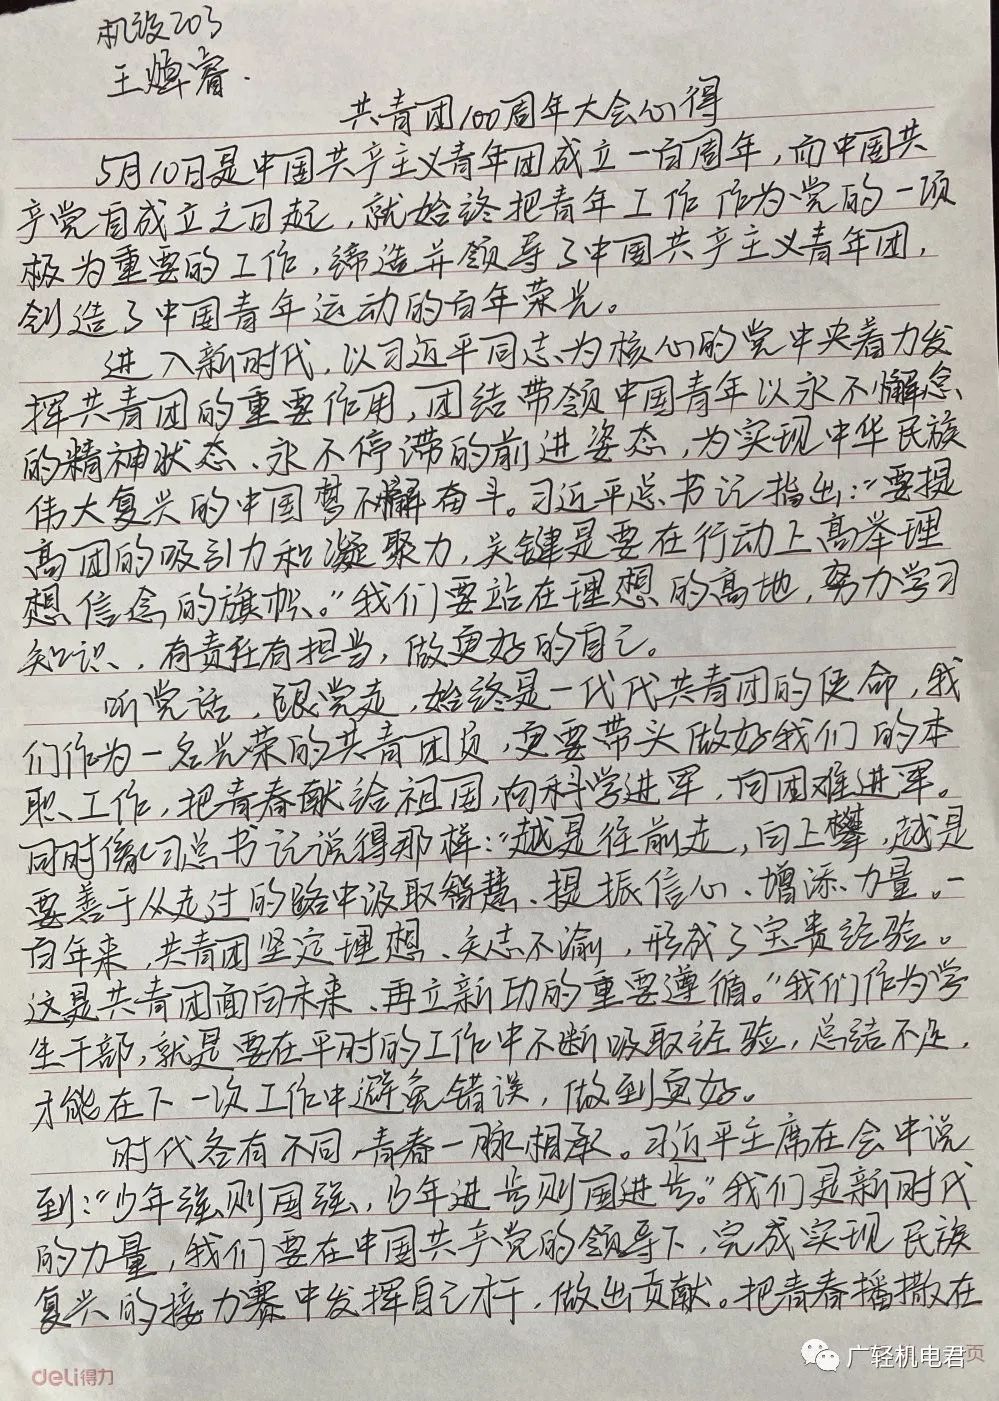 机设203
王焯睿.
共青团100周年大会心得
5月10日是中国共产主义青年团成立一百周年，而中国共
产党自成立之日起，就始终把青年工作作为党的一项
极为重要的工作，缔造并领导了中国共产主义青年团，
创造了中国青年运动的百年荣光。
进入新时代，以习近平同志为核心的党中央着力发
挥共青团的重要作用，团结带领中国青年以永不懈怠
的精神状态、永不停滞的前进姿态，为实现中华民族
伟大复兴的中国梦不懈奋斗。习近平总书记指出：“要提
高团的吸引力和凝聚力，关键是要在行动上高举理
想信念的旗帜。”我们要站在理想的高地，努力学习
知识，有责任有担当，做更好的自己。
听党话，跟党走，始终是一代代共青团的使命，我
们作为一名光荣的共青团员，更要带头做好我们的本
职工作，把青春献给祖国，向科学进军，向困难进军。
同时像习总书记说得那样：“越是往前走，向上攀，越是
要善于从走过的路中汲取智慧、提振信心、增添力量。一
百年来，共青团坚定理想、矢志不渝，形成了宝贵经验。
这是共青团面向未来、再立新功的重要遵循。”我们作为学
生干部，就是要在平时的工作中不断吸取经验，总结不足，
才能在下一次工作中避免错误，做到更好。
时代各有不同，青春一脉相承。习近平主席在会中说
到：“少年强则国强，少年进步则国进步。”我们是新时代
的力量，我们要在中国共产党的领导下，完成实现民族
复兴的接力赛中发挥自己才干，做出贡献。把青春播撒在
deli得力
广轻机电君
页